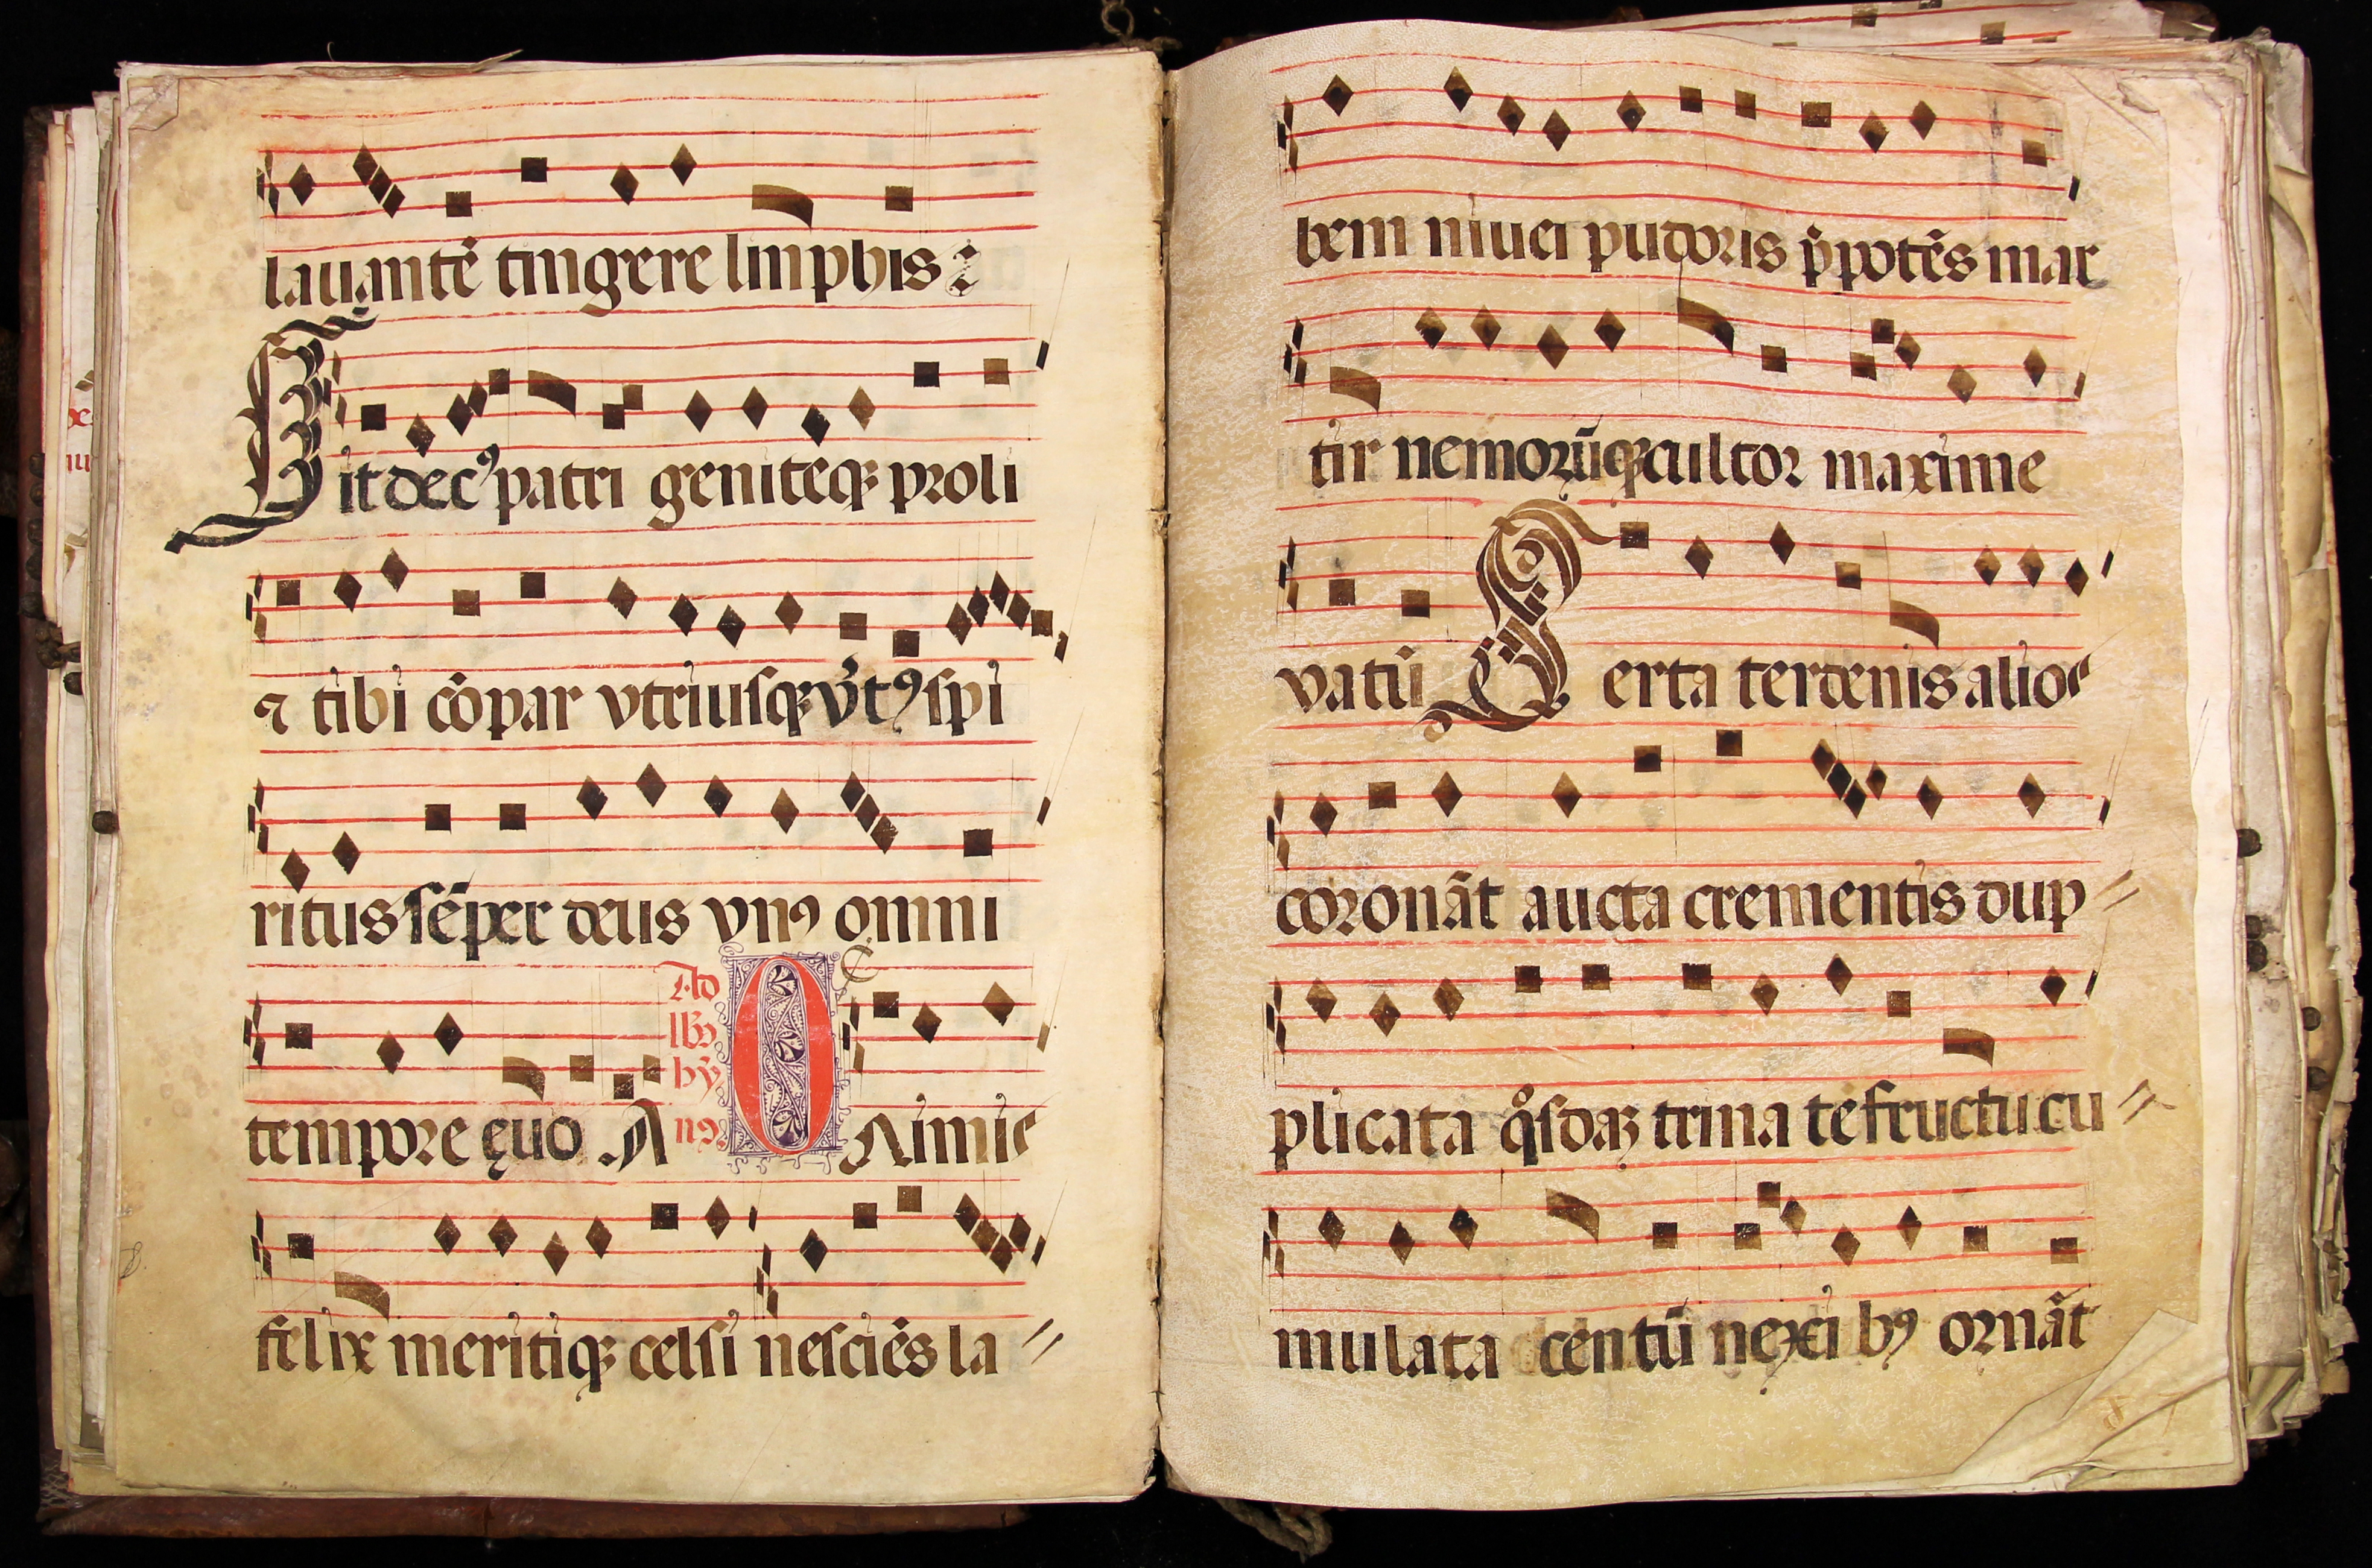 lauantē tingere linphis:
Sit decꝰ patri geniteqꝫ proli
⁊ tibi cōpar vtriusqꝫ v̉tꝰ spi
ritus sēper deus vnꝰ omni
tempore ęuo. A
Ad
lꝰ
hy̅
nꝰ.
O Nimis
felix meritiqꝫ celsi nesciēs la
bem niuei pudoris p̄potēs mar
tir nemorūqꝫ cultor maxime
vatū Serta terdenis alios
coronāt aucta crementis dup
plicata qͦsdaꝫ trina te fructu cu
mulata centū nexi bꝰ ornāt